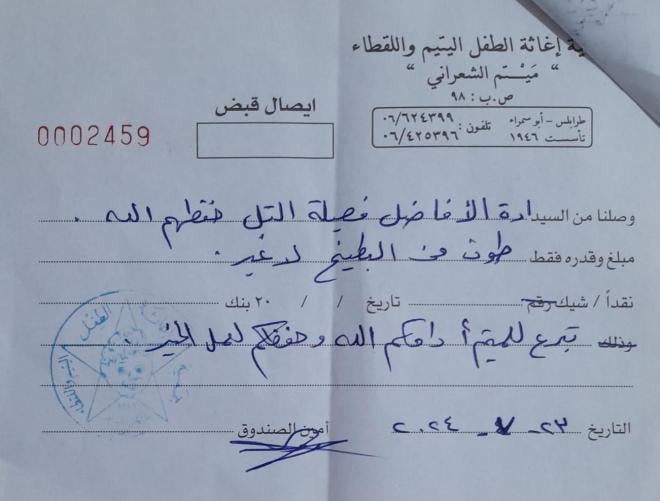 ية إغاثة الطفل اليتيم واللقطاء
" مَيْتم الشعراني "
ص.ب : ٩٨
ايصال قبض
0002459
طرابلس - أبو سمراء
تأسست ١٩٤٦
تلفون : ٠٦/٦٢٤٣٩٩
٠٦/٤٢٥٣٩٦
وصلنا من السيدادة الأفاضل فصيلة التل حفظهم الله .
مبلغ وقدره فقط طون من البطيخ لا غير .
نقداً / شيك رقم تاريخ / / ٢٠ بنك
وذلك تبرع للميتم أدامكم الله وحفظكم لعمل الخير .
التاريخ ٢٣ - ٧ - ٢٠٢٤
أمين الصندوق
الطفل